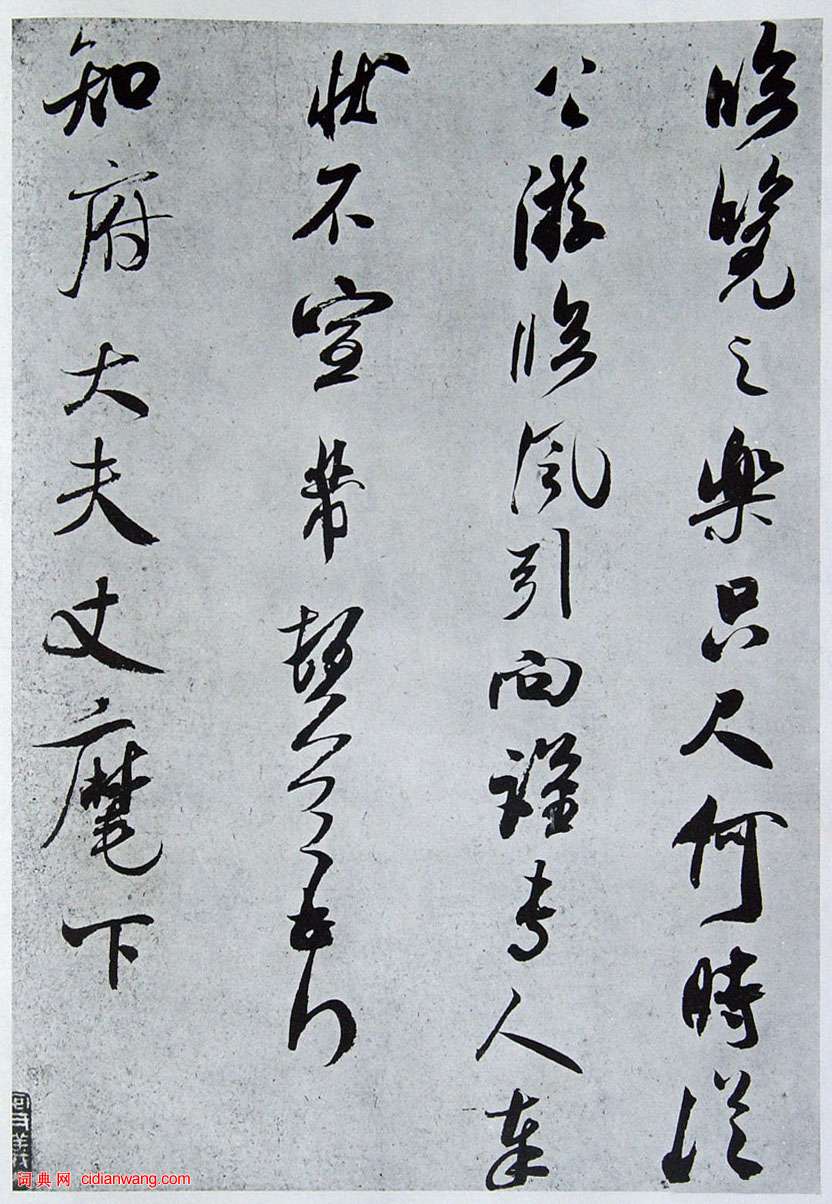 臨覽之樂只尺何時從
公游臨風引向謹専人奉
狀不宣芾頓首再拜
知府大夫丈麾下
词典网 cidianwang.com